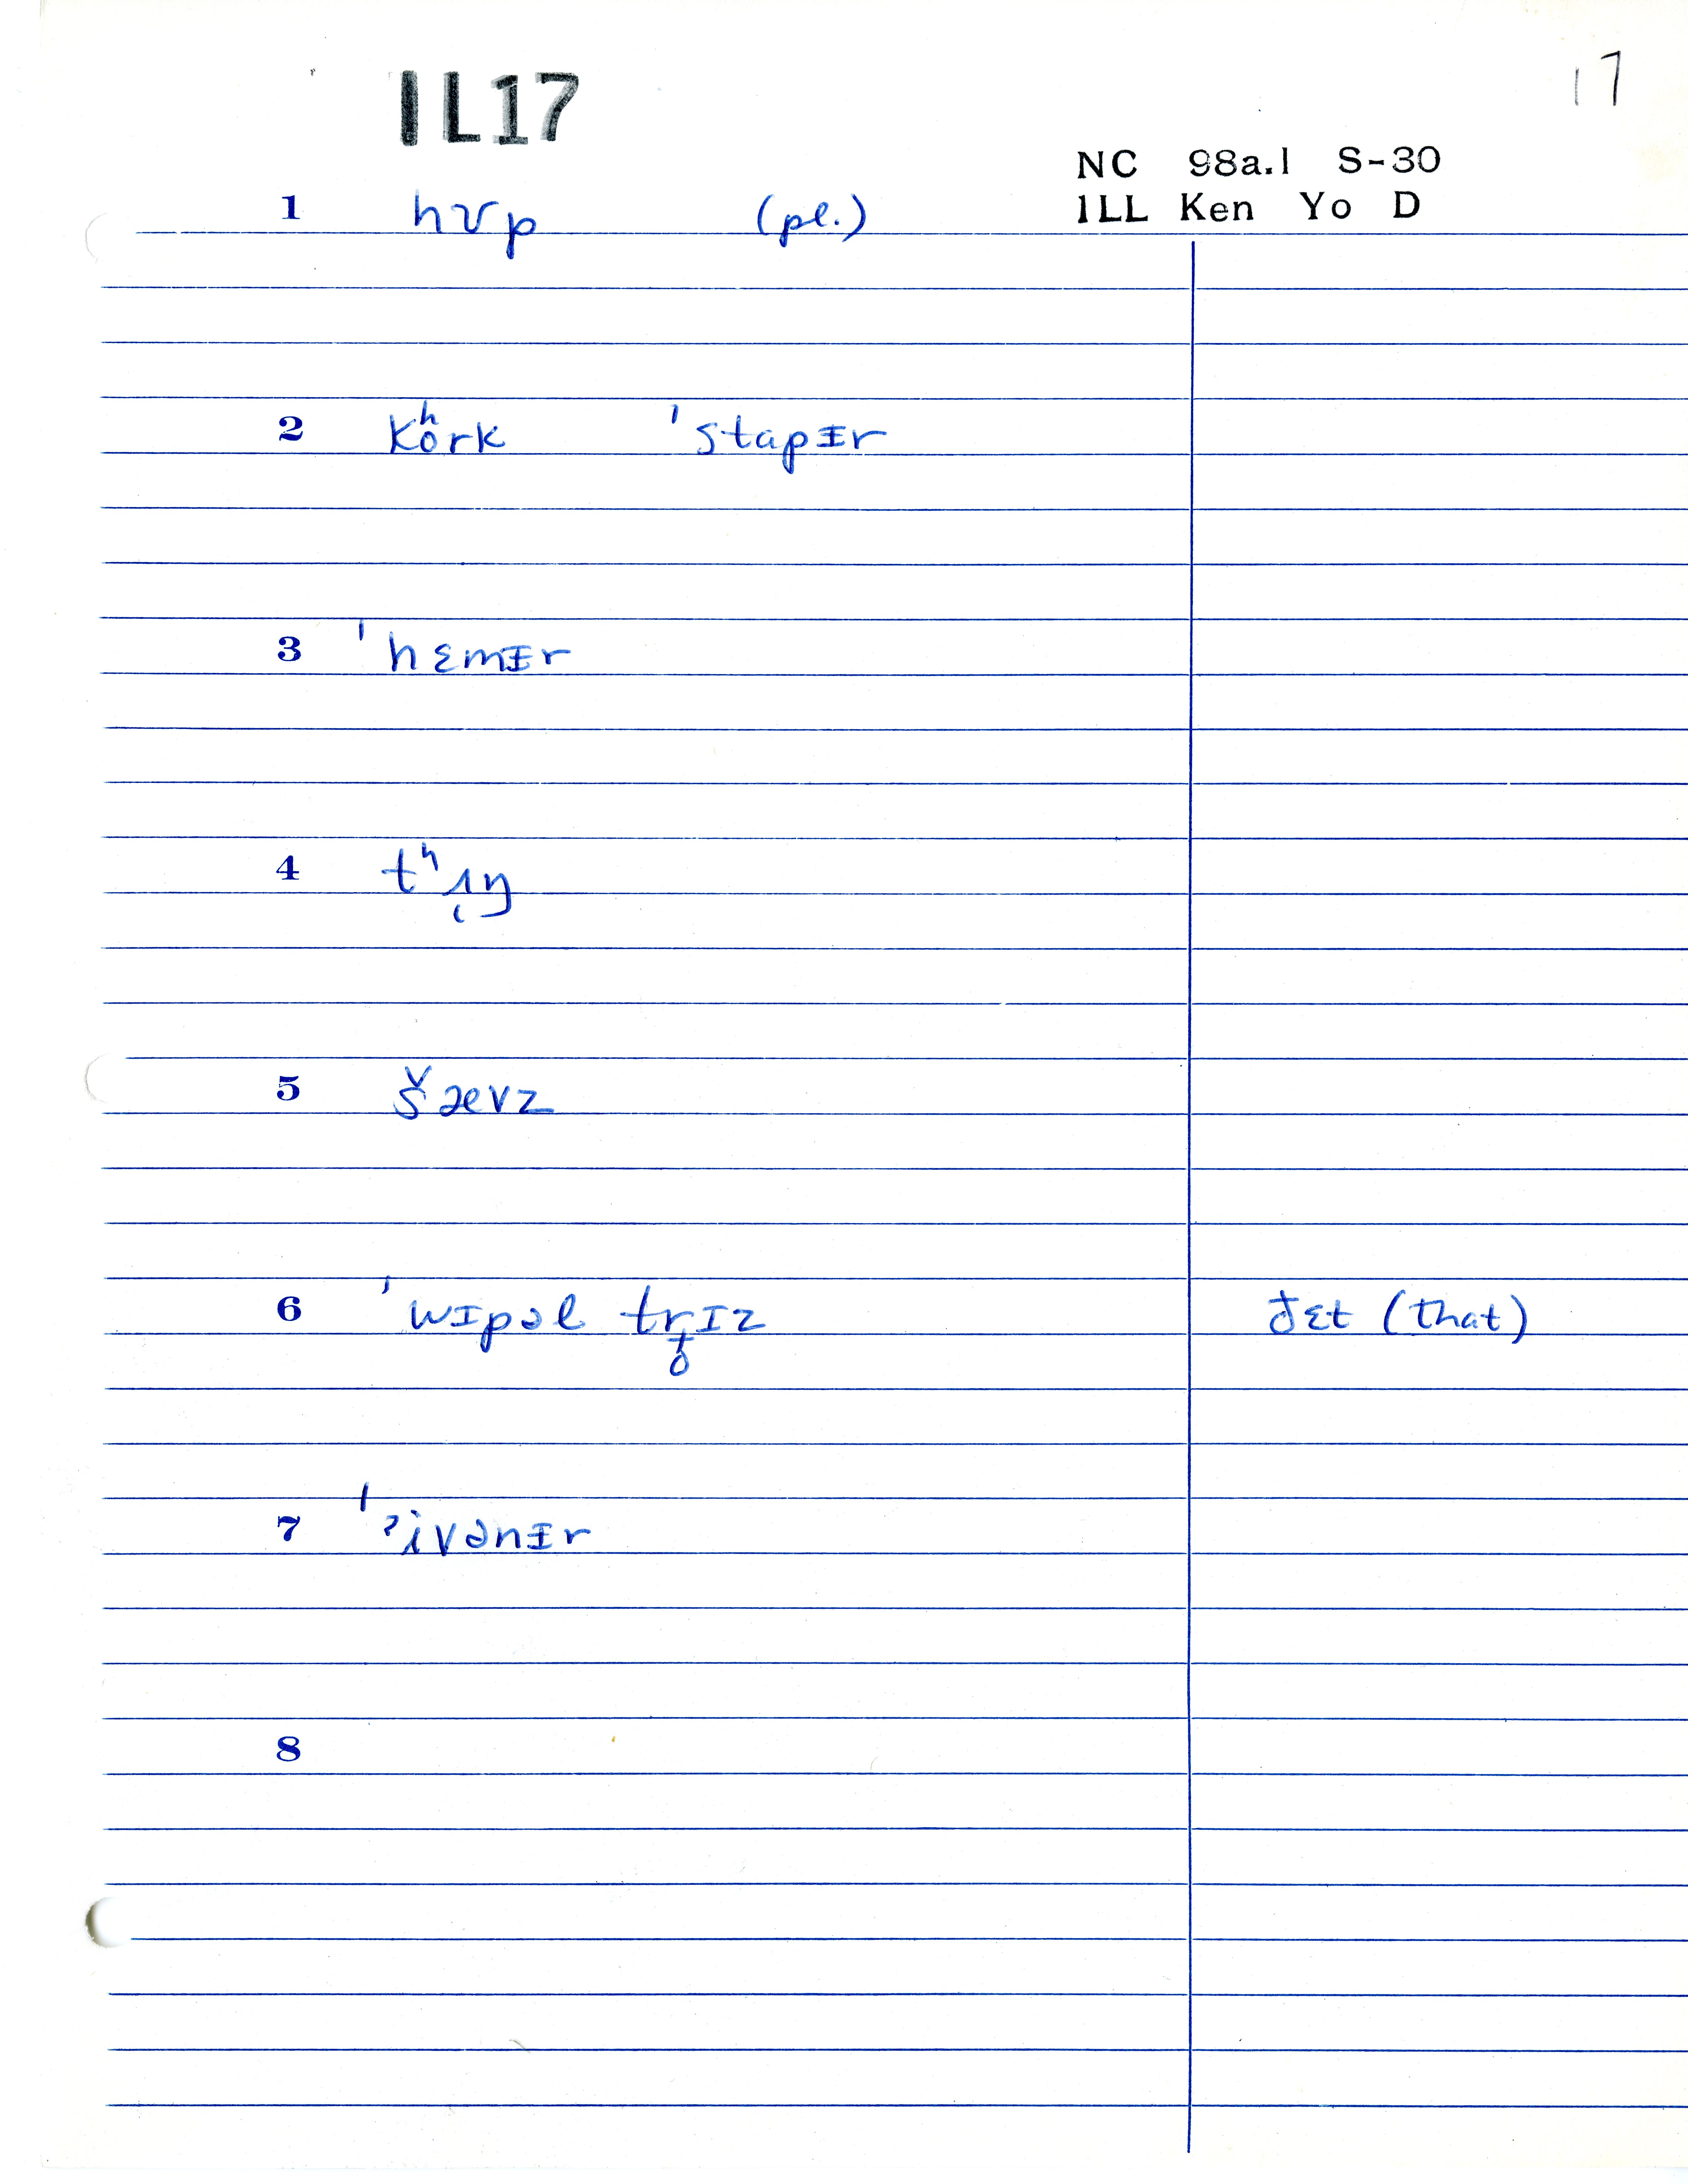 IL17
17
NC 98a.1 S-30
ILL Ken Yo D
1 hʊp (pl.)
2 kʰork ˈstapɪr
3 ˈhɛmɪr
4 tʰɪŋ
5 šævz
6 ˈwɪpəl tr̥ɪz ðɛt (that)
7 ˈʔivənɪr
8